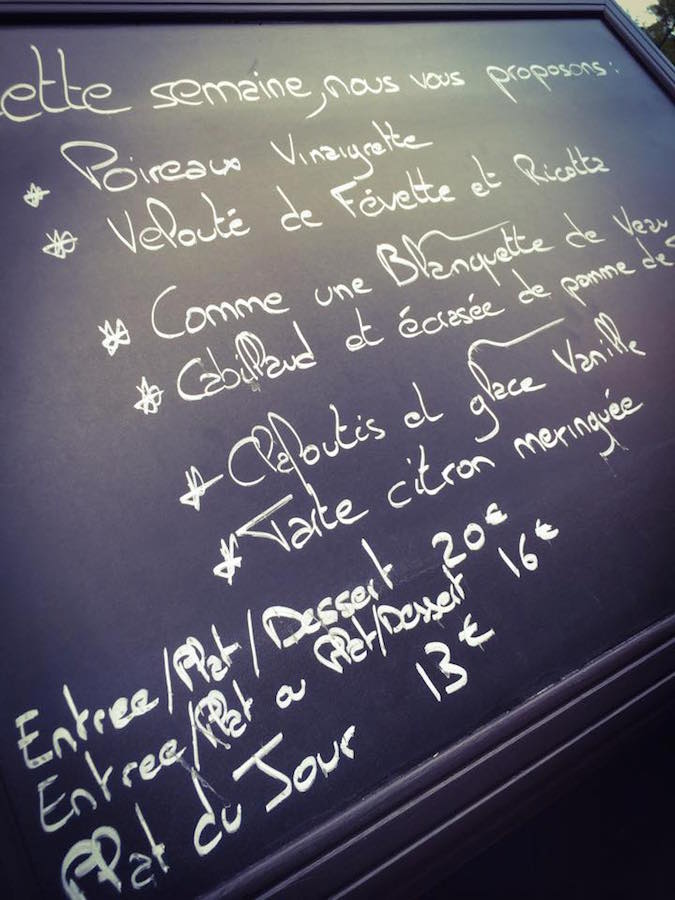 Cette semaine, nous vous proposons:
* Poireaux Vinaigrette
* Velouté de Févette et Ricotta
* Comme une Blanquette de Veau
* Cabillaud et écrasée de pomme de T
* Clafoutis et glace Vanille
* Tarte citron meringuée
Entree/Plat/Dessert 20€
Entree/Plat ou Plat/Dessert 16€
Plat du Jour 13€